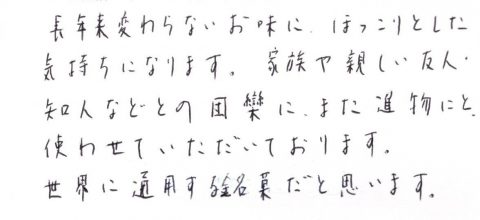 長年来変わらないお味に、ほっこりとした
気持ちになります。家族や親しい友人・
知人などとの団欒に、また進物にと、
使わせていただいております。
世界に通用する銘菓だと思います。